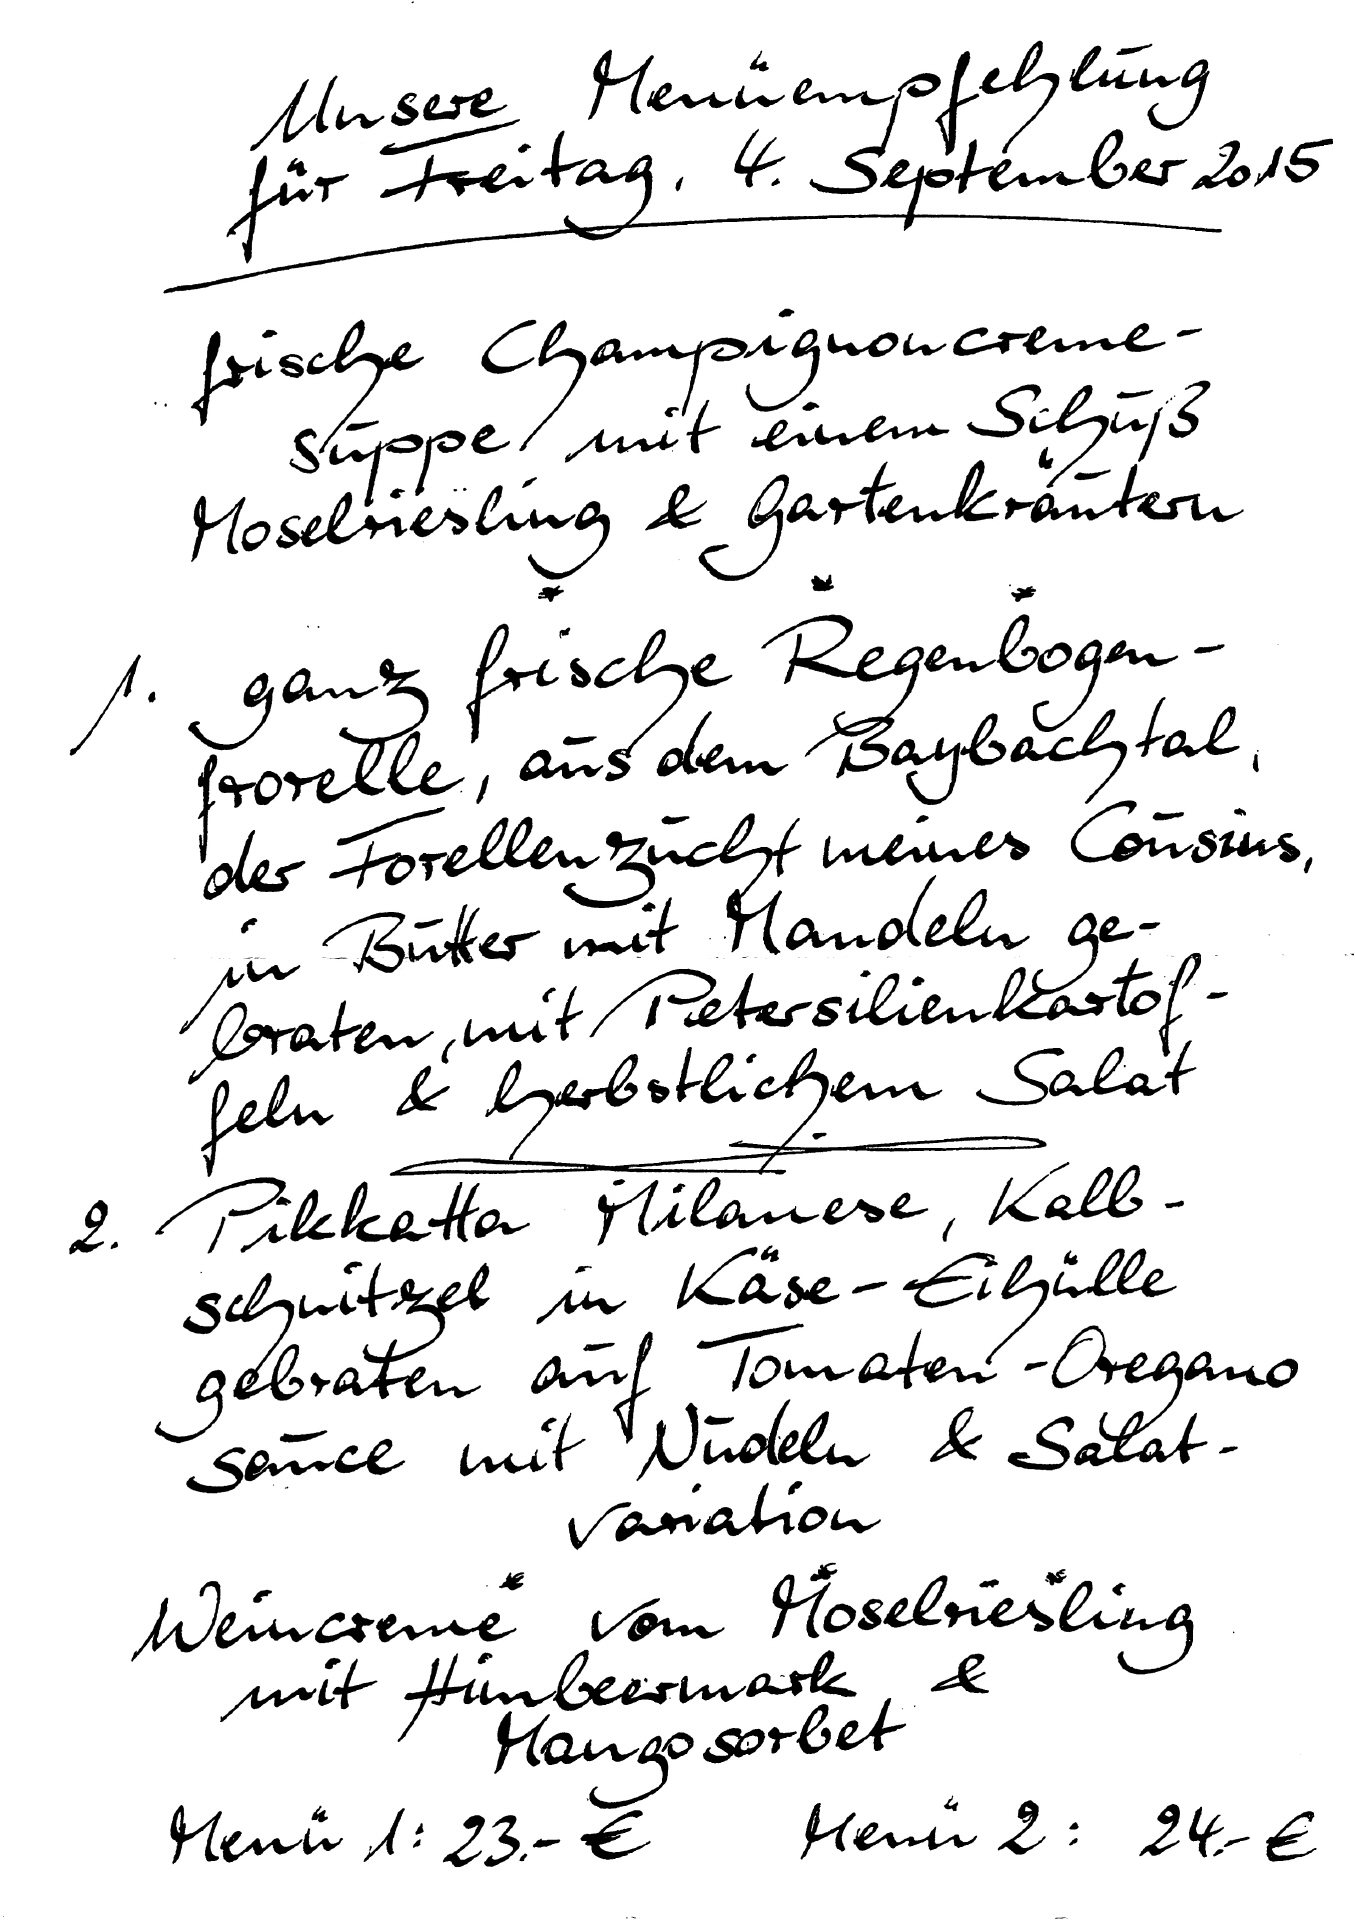 Unsere Menüempfehlung
für Freitag, 4. September 2015
frische Champignoncreme-
suppe, mit einem Schuß
Moselriesling & Gartenkräutern
* * *
1. ganz frische Regenbogen-
frorelle, aus dem Baybachtal,
der Forellenzucht meines Cousins,
in Butter mit Mandeln ge-
braten, mit Petersilienkartof-
feln & herbstlichem Salat
2. Pikkatta Milanese, Kalb-
schnitzel in Käse-Eihülle
gebraten auf Tomaten-Oregano
sauce mit Nudeln & Salat-
variation
* * *
Weincreme vom Moselriesling
mit Himbeermark &
Mangosorbet
Menü 1: 23.- € Menü 2: 24.- €